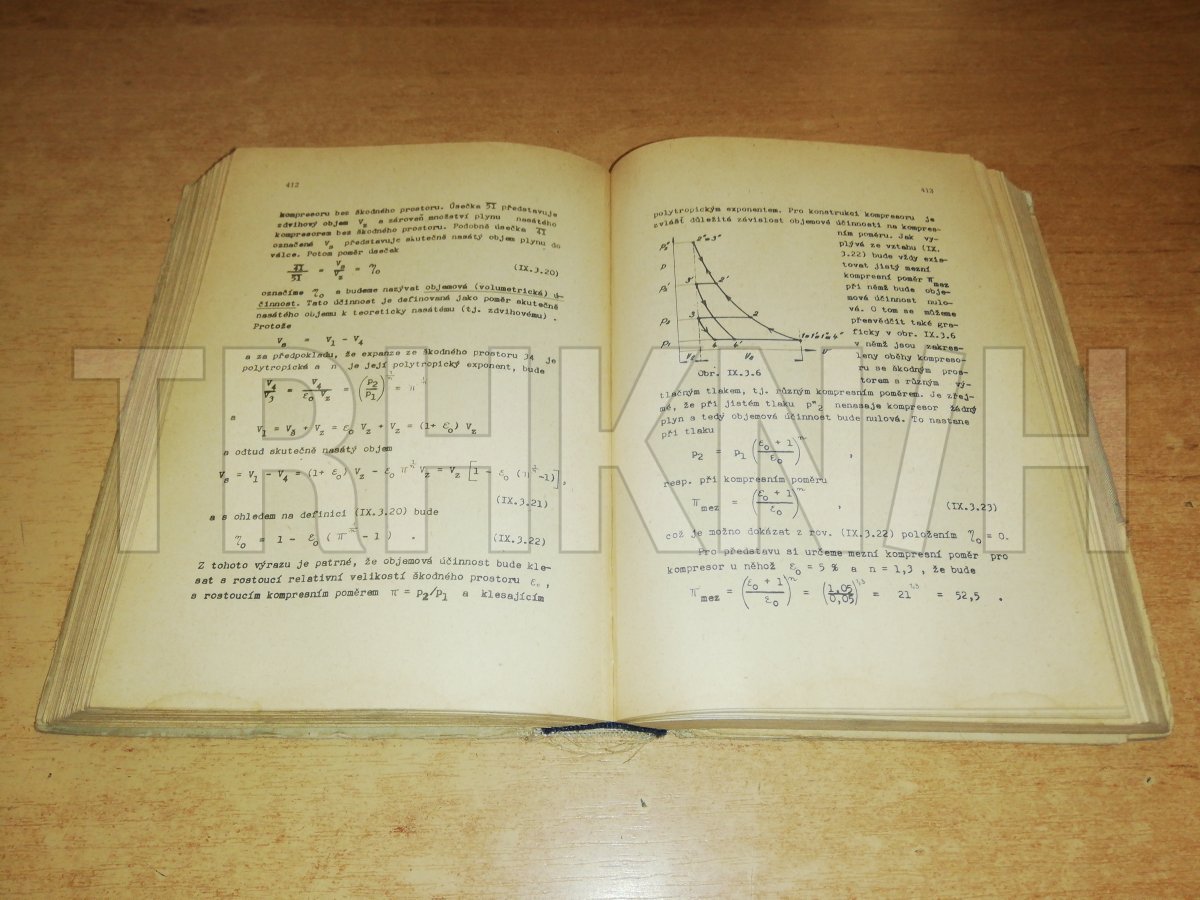 412
kompresoru bez škodného prostoru. Úsečka 51 představuje
zdvihový objem Vz a zároveň množství plynu nasátého
kompresorem bez škodného prostoru. Podobně úsečka 41
označená Vs představuje skutečně nasátý objem plynu do
válce. Potom poměr úseček
41/51 = Vs/Vz = η₀ (IX.3.20)
označíme η₀ a budeme nazývat objemová (volumetrická) ú-
činnost. Tato účinnost je definovaná jako poměr skutečně
nasátého objemu k teoreticky nasátému (tj. zdvihovému) .
Protože
Vs = V1 - V4
a za předpokladu, že expanze ze škodného prostoru 34 je
polytropická a n je její polytropický exponent, bude
V4/V3 = V4/(ε₀ Vz) = (p2/p1)^(1/n) = π^(1/n)
a
V1 = Vš + Vz = ε₀ Vz + Vz = (1+ ε₀) Vz
a odtud skutečně nasátý objem
Vs = V1 - V4 = (1+ ε₀) Vz - ε₀ π^(1/n) Vz = Vz [1 - ε₀ (π^(1/n) -1)] ,
(IX.3.21)
a s ohledem na definici (IX.3.20) bude
η₀ = 1 - ε₀ ( π^(1/n) - 1 ) . (IX.3.22)
Z tohoto výrazu je patrné, že objemová účinnost bude kle-
sat s rostoucí relativní velikostí škodného prostoru ε₀ ,
s rostoucím kompresním poměrem π = p2/p1 a klesajícím
413
polytropickým exponentem. Pro konstrukci kompresoru je
zvlášť důležitá závislost objemové účinnosti na kompres-
ním poměru. Jak vy-
plývá ze vztahu (IX.
3.22) bude vždy exis-
tovat jistý mezní
kompresní poměr πmez
při němž bude obje-
mová účinnost nulo-
vá. O tom se můžeme
přesvědčit také gra-
ficky v obr. IX.3.6
v němž jsou zakres-
leny oběhy kompreso-
ru se škodným pros-
torem a různým vý-
p2"
p
p2'
p2
p1
2"≡3"
3' 2'
3 2
4 4' 1≡1'≡1"≡4"
Vš Vs v
Obr. IX.3.6
tlačným tlakem, tj. různým kompresním poměrem. Je zřej-
mé, že při jistém tlaku p"2 nenasaje kompresor žádný
plyn a tedy objemová účinnost bude nulová. To nastane
při tlaku
p2 = p1 ((ε₀ + 1)/ε₀)^n ,
resp. při kompresním poměru
πmez = ((ε₀ + 1)/ε₀)^n , (IX.3.23)
což je možno dokázat z rov. (IX.3.22) položením η₀ = 0.
Pro představu si určeme mezní kompresní poměr pro
kompresor u něhož ε₀ = 5 % a n = 1,3 , že bude
πmez = ((ε₀ + 1)/ε₀)^n = (1,05/0,05)^1,3 = 21^1,3 = 52,5 .
TRHKNIH